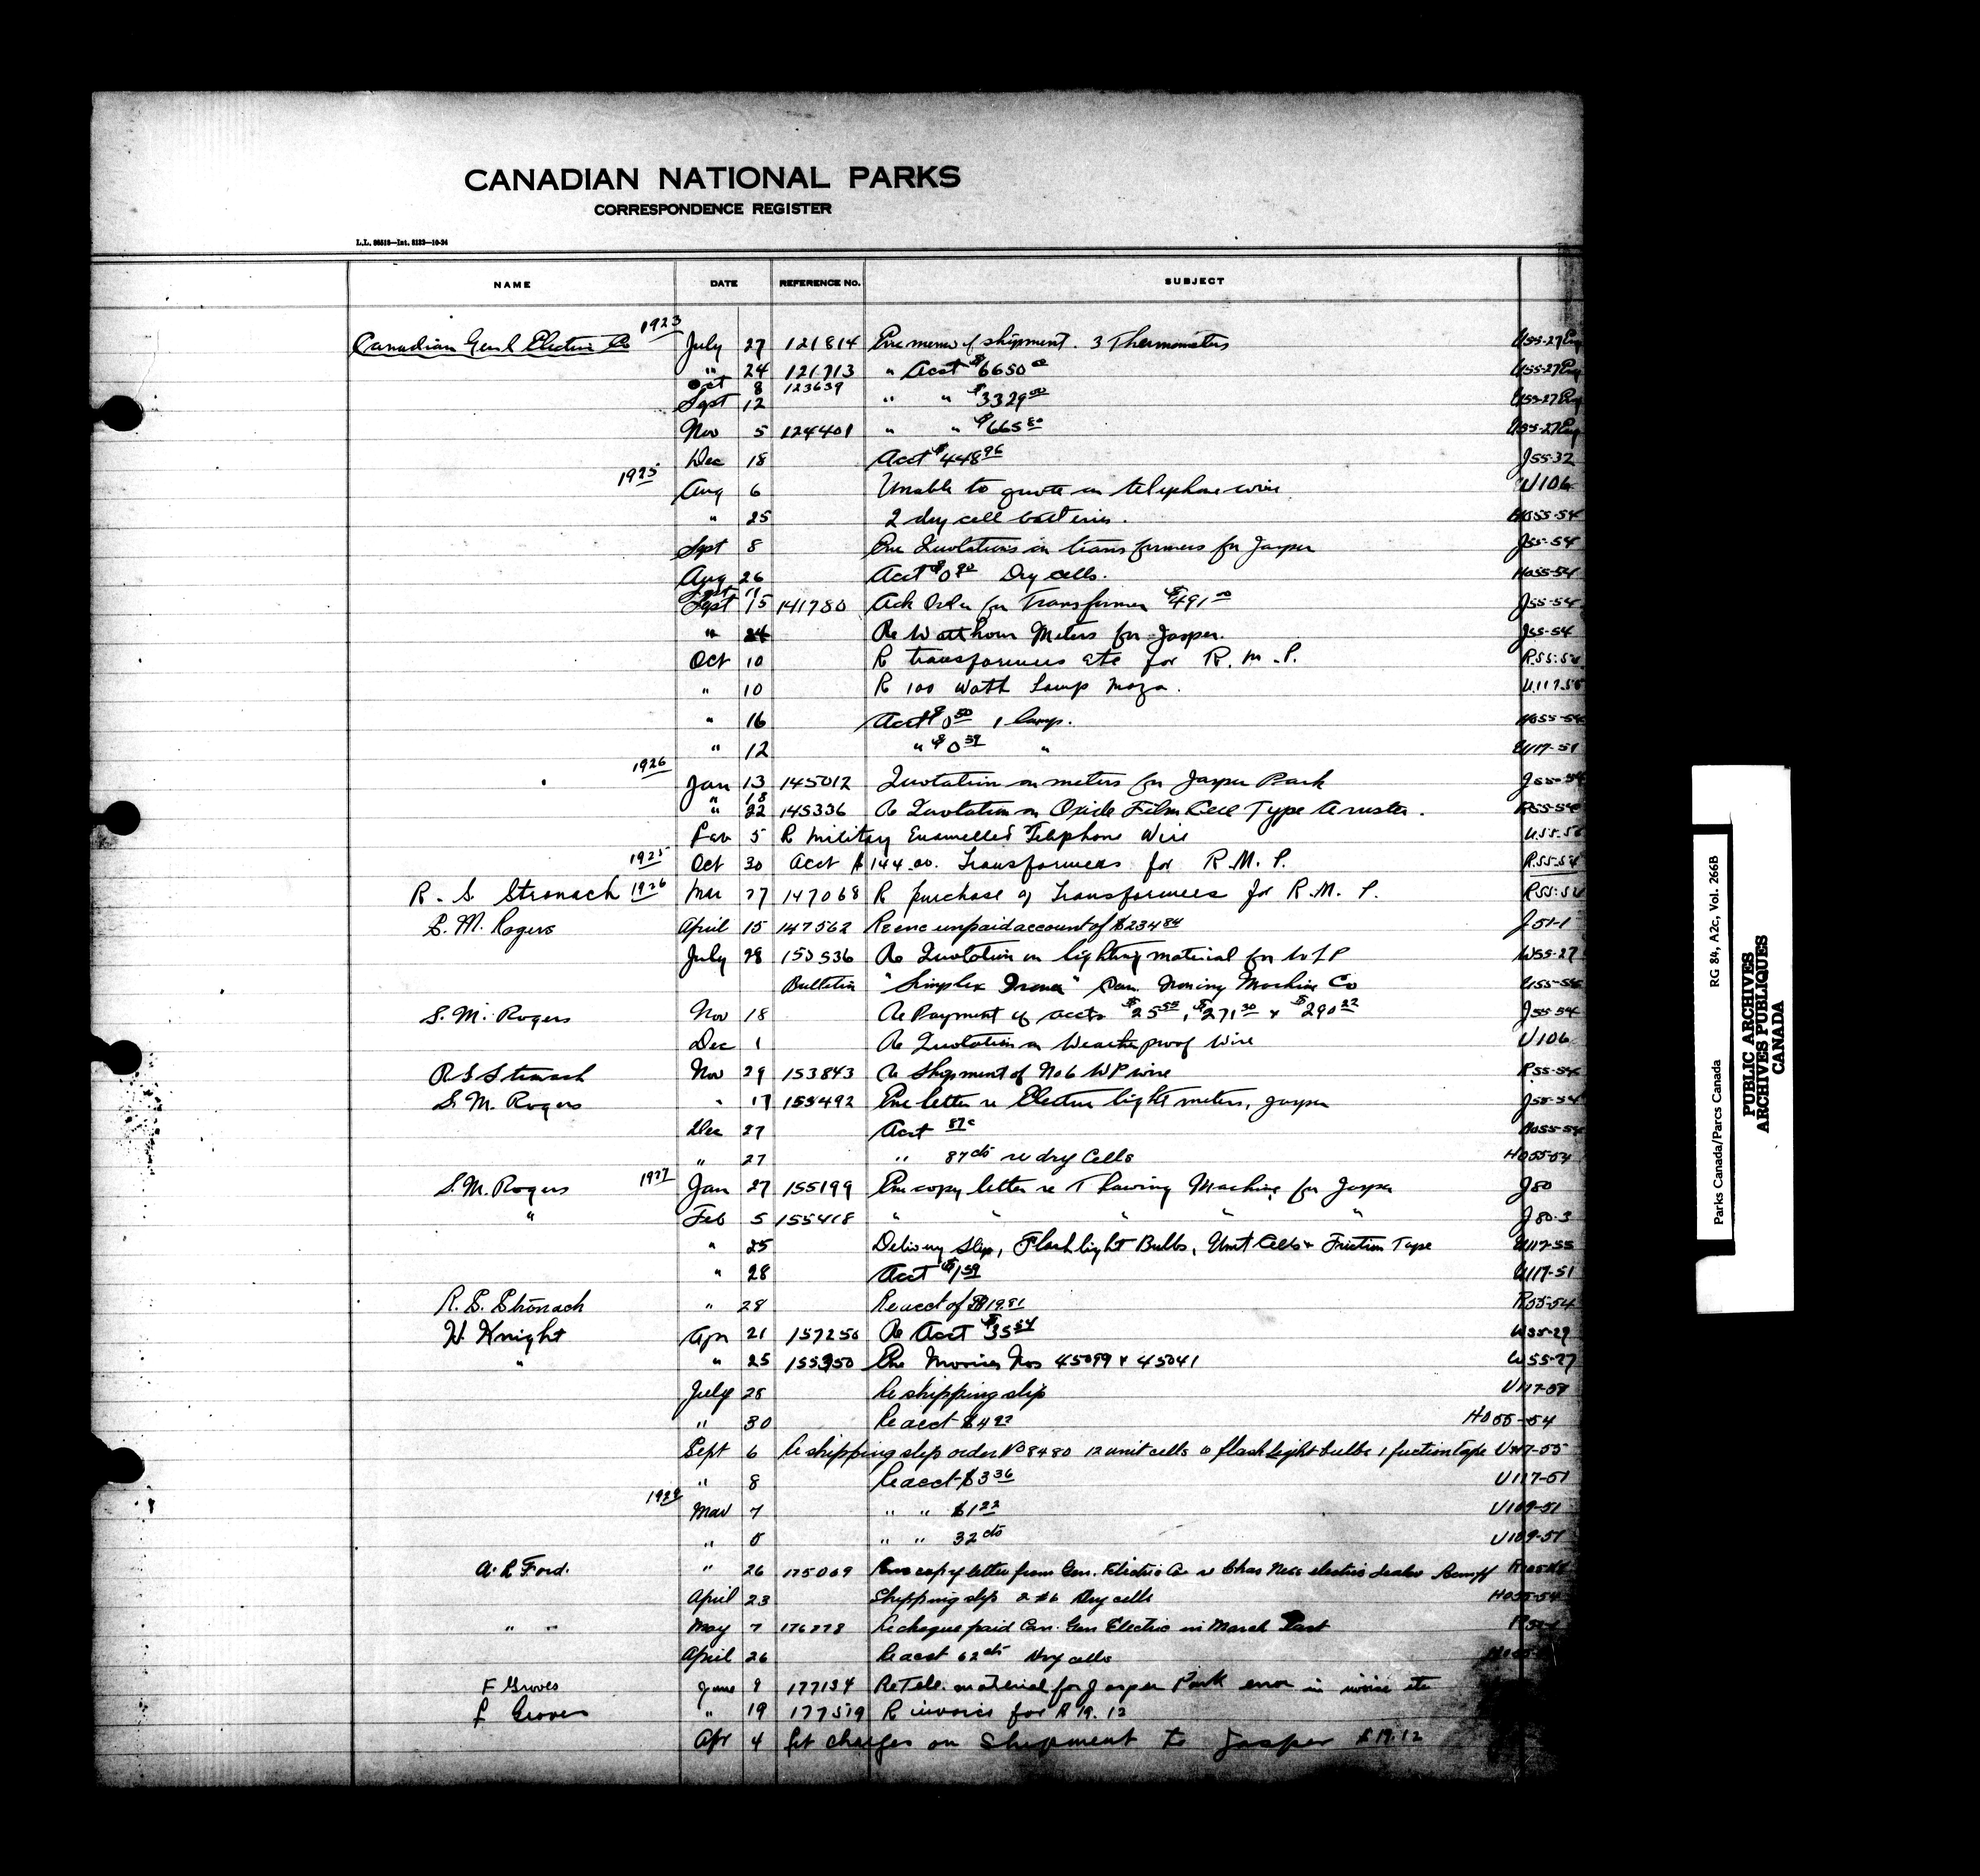 CANADIAN NATIONAL PARKS
CORRESPONDENCE REGISTER
NAME DATE REFERENCE No. SUBJECT
Canadian Genl Electric Co 1923 July 27 121814 Enc memo of shipment. 3 Thermometers U55-27
" 24 121713 " Acct $6650 U55-27
Oct 8 123639
Sept 12 " " $3329.00 U55-27
Nov 5 124401 " " $665 U55-27
Dec 18 Acct $448.96 J55-32
1925 Aug 6 Unable to quote on telephone wire U106
" 25 2 dry cell batteries. Ho55-54
Sept 8 Enc Quotations on transformers for Jasper J55-54
Aug 26 Acct $0.90 Dry cells. Ho55-54
Sept 11
Sept 15 141780 Ack Order for Transformer $491.00 J55-54
" 24 Re Watthour Meters for Jasper. J55-54
Oct 10 R transformers etc for R. M. P. R55-54
" 10 R 100 Watt Lamp Mazda. U117-55
" 16 Acct $0.50 1 lamp. Ho55-54
" 12 " $0.39 " U117-51
1926 Jan 13 145012 Quotation on meters for Jasper Park J55-54
" 18
" 22 145336 Re Quotation on Oxide Film Cell Type Arrester. R55-54
Feb 5 R Military Enamelled Telephone Wire U55-56
1925 Oct 30 Acct $144.00. Transformers for R.M.P. R55-54
R. S. Stronach 1926 Mar 27 147068 R purchase of Transformers for R.M. P. R55-54
S. M. Rogers April 15 147562 Re enc unpaid account of $234.84 J51-1
July 28 150536 Re Quotation on lighting material for W L P W55-27
Bulletin "Simplex Ironer" Can. Ironing Machine Co U55-56
S. M. Rogers Nov 18 Re Payment of accts $25.55, $271.30 & $290.22 J55-54
Dec 1 Re Quotation on Weatherproof Wire U106
R S Stronach Nov 29 153843 Re Shipment of No 6 WP wire R55-54
S. M. Rogers " 17 153492 Enc letter re Electric light meters, Jasper J55-54
Dec 27 Acct 87c Ho55-54
" 27 " 87cts re dry Cells Ho55-54
S. M. Rogers 1927 Jan 27 155199 Enc copy letter re Thawing Machine for Jasper J80
" Feb 5 155418 " " " " " J80-3
" 25 Delivery Slip, Flashlight Bulbs, Unit Cells & Friction Tape U117-55
" 28 Acct $1.59 U117-51
R. S. Stronach " 28 Re acct of $19.81 R55-54
H. Knight Apr 21 157250 Re Acct $35.54 W55-29
" " 25 155350 Enc Invoices Nos 45099 & 45041 W55-27
July 28 Re shipping slip U117-51
" 30 Re acct $4.22 Ho55-54
Sept 6 Re shipping slip order No 8480 12 unit cells 6 flash light bulbs 1 friction tape U117-55
" 8 Re acct $3.36 U117-51
1929 Mar 7 " " $1.22 U109-51
" 8 " " 32cts U109-51
A. R Ford. " 26 175069 Enc copy letter from Gen. Electric Co re Chas Ness electric dealer Banff
April 23 Shipping slip 2 #6 Dry cells Ho55-54
" " May 7 176778 Re cheque paid Can. Gen Electric in March last
April 26 Re acct 62cts Dry cells
F Groves June 8 177134 Re Tele. material for Jasper Park error in invoice etc
F Groves " 19 177519 R invoice for $19.12
Apr 4 frt charges on shipment to Jasper $19.12
Parks Canada/Parcs Canada RG 84, A2c, Vol. 266B
PUBLIC ARCHIVES
ARCHIVES PUBLIQUES
CANADA